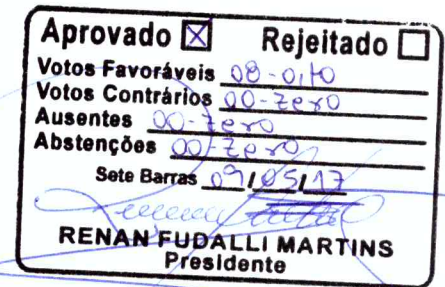 Aprovado ☒ Rejeitado ☐
Votos Favoráveis 08-oito
Votos Contrários 00-zero
Ausentes 00-zero
Abstenções 00-zero
Sete Barras 09/05/17
RENAN FUDALLI MARTINS
Presidente